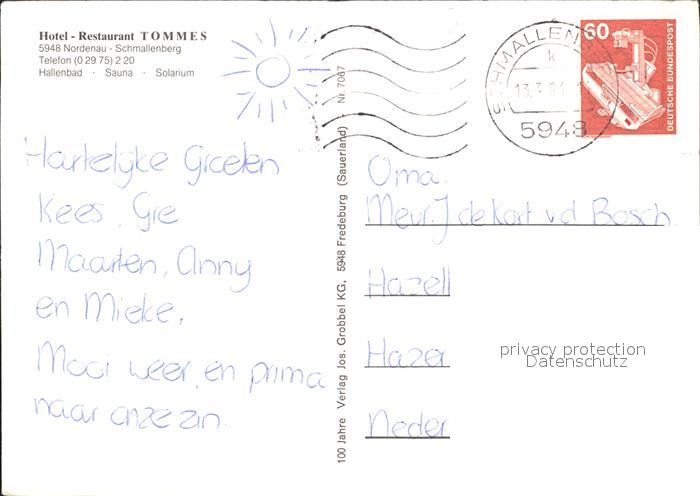 Hotel - Restaurant TOMMES
5948 Nordenau - Schmallenberg
Telefon (0 29 75) 2 20
Hallenbad · Sauna · Solarium
Hartelijke Groeten
Kees, Gie
Maarten, Anny
en Mieke,
Mooi weer, en prima
naar onze zin.
100 Jahre Verlag Jos. Grobbel KG, 5948 Fredeburg (Sauerland) · Nr. 7067
SCHMALLEN
k
5948
60
DEUTSCHE BUNDESPOST
Oma.
Mevr. J de Kort vd Bosch
Hazell
Hazer
Neder
privacy protection
Datenschutz